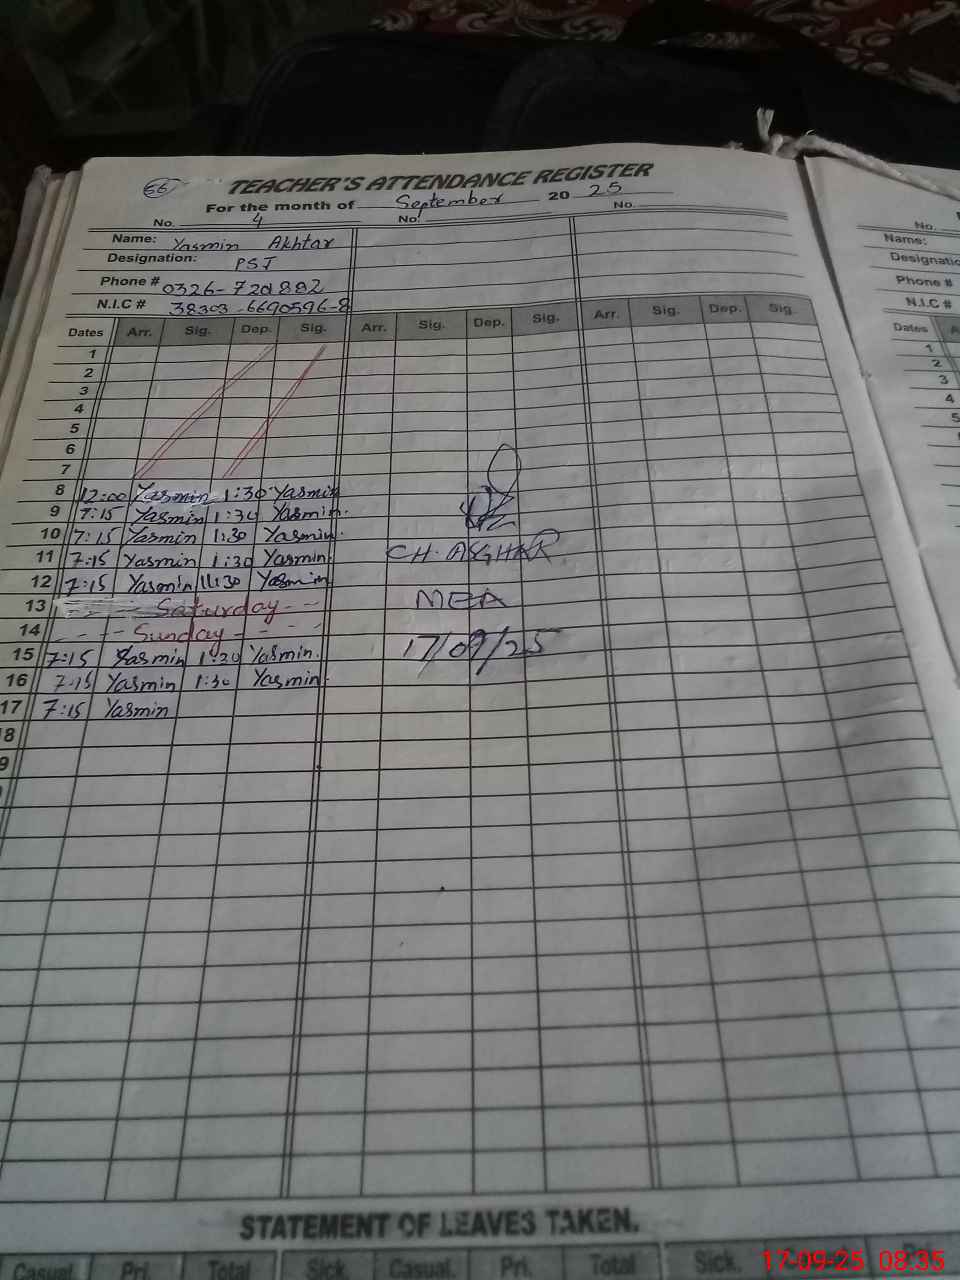 56
TEACHER'S ATTENDANCE REGISTER
For the month of September 2025
No. 4 No. No.
Name: Yasmin Akhtar
Designation: PST
Phone #
N.I.C # 38303-6690596-8
Dates Arr. Sig. Dep. Sig. Arr. Sig. Dep. Sig. Arr. Sig. Dep. Sig.
1
2
3
4
5
6
7
8 12:00 Yasmin 1:30 Yasmin
9 7:15 Yasmin 1:30 Yasmin.
10 7:15 Yasmin 1:30 Yasmin.
11 7:15 Yasmin 1:30 Yasmin.
12 7:15 Yasmin 11:30 Yasmin
13 Saturday
14 Sunday
15 7:15 Yasmin 1:30 Yasmin.
16 7:15 Yasmin 1:30 Yasmin.
17 7:15 Yasmin
8
9
CH. ASGHAR
MEA
17/09/25
STATEMENT OF LEAVES TAKEN.
Casual. Pri. Total Sick. Casual. Pri. Total Sick.
No.
Name:
Designatio
Phone #
N.I.C #
Dates A
1
2
3
4
5
17-09-25 08:35